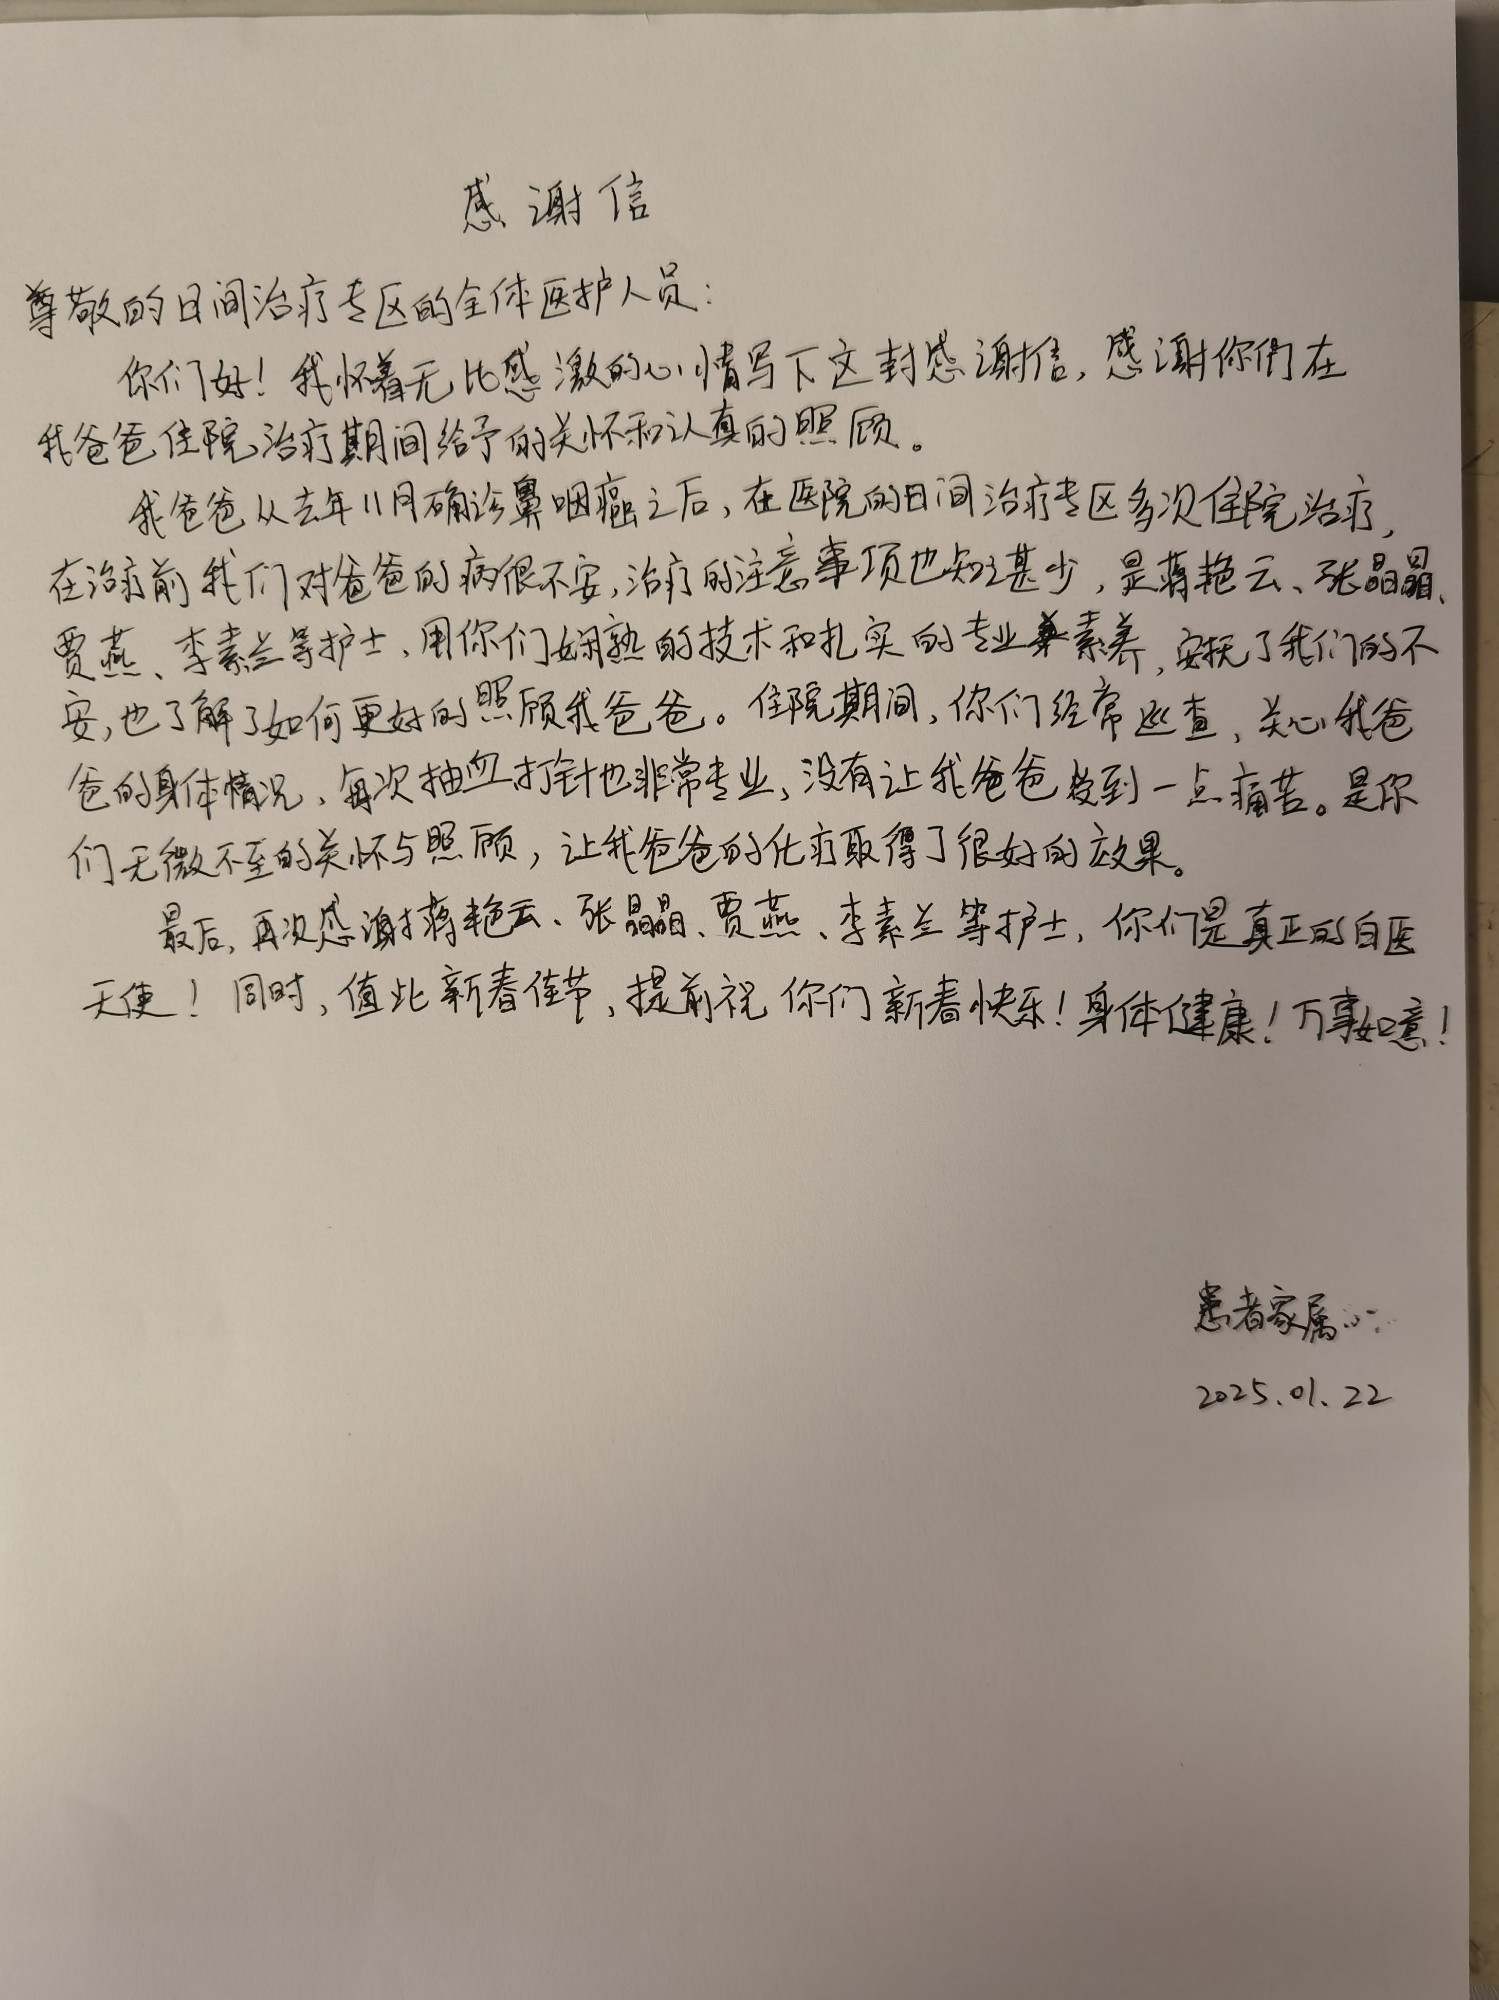 感谢信
尊敬的日间治疗专区的全体医护人员：
你们好！我怀着无比感激的心情写下这封感谢信，感谢你们在
我爸爸住院治疗期间给予的关怀和认真的照顾。
我爸爸从去年11月确诊鼻咽癌之后，在医院的日间治疗专区多次住院治疗，
在治疗前我们对爸爸的病很不安，治疗的注意事项也知之甚少，是蒋艳云、张晶晶、
贾燕、李素兰等护士，用你们娴熟的技术和扎实的专业素养，安抚了我们的不
安，也了解了如何更好的照顾我爸爸。住院期间，你们经常巡查，关心我爸
爸的身体情况，每次抽血打针也非常专业，没有让我爸爸受到一点痛苦。是你
们无微不至的关怀与照顾，让我爸爸的化疗取得了很好的效果。
最后，再次感谢蒋艳云、张晶晶、贾燕、李素兰等护士，你们是真正的白医
天使！同时，值此新春佳节，提前祝你们新春快乐！身体健康！万事如意！
患者家属
2025.01.22